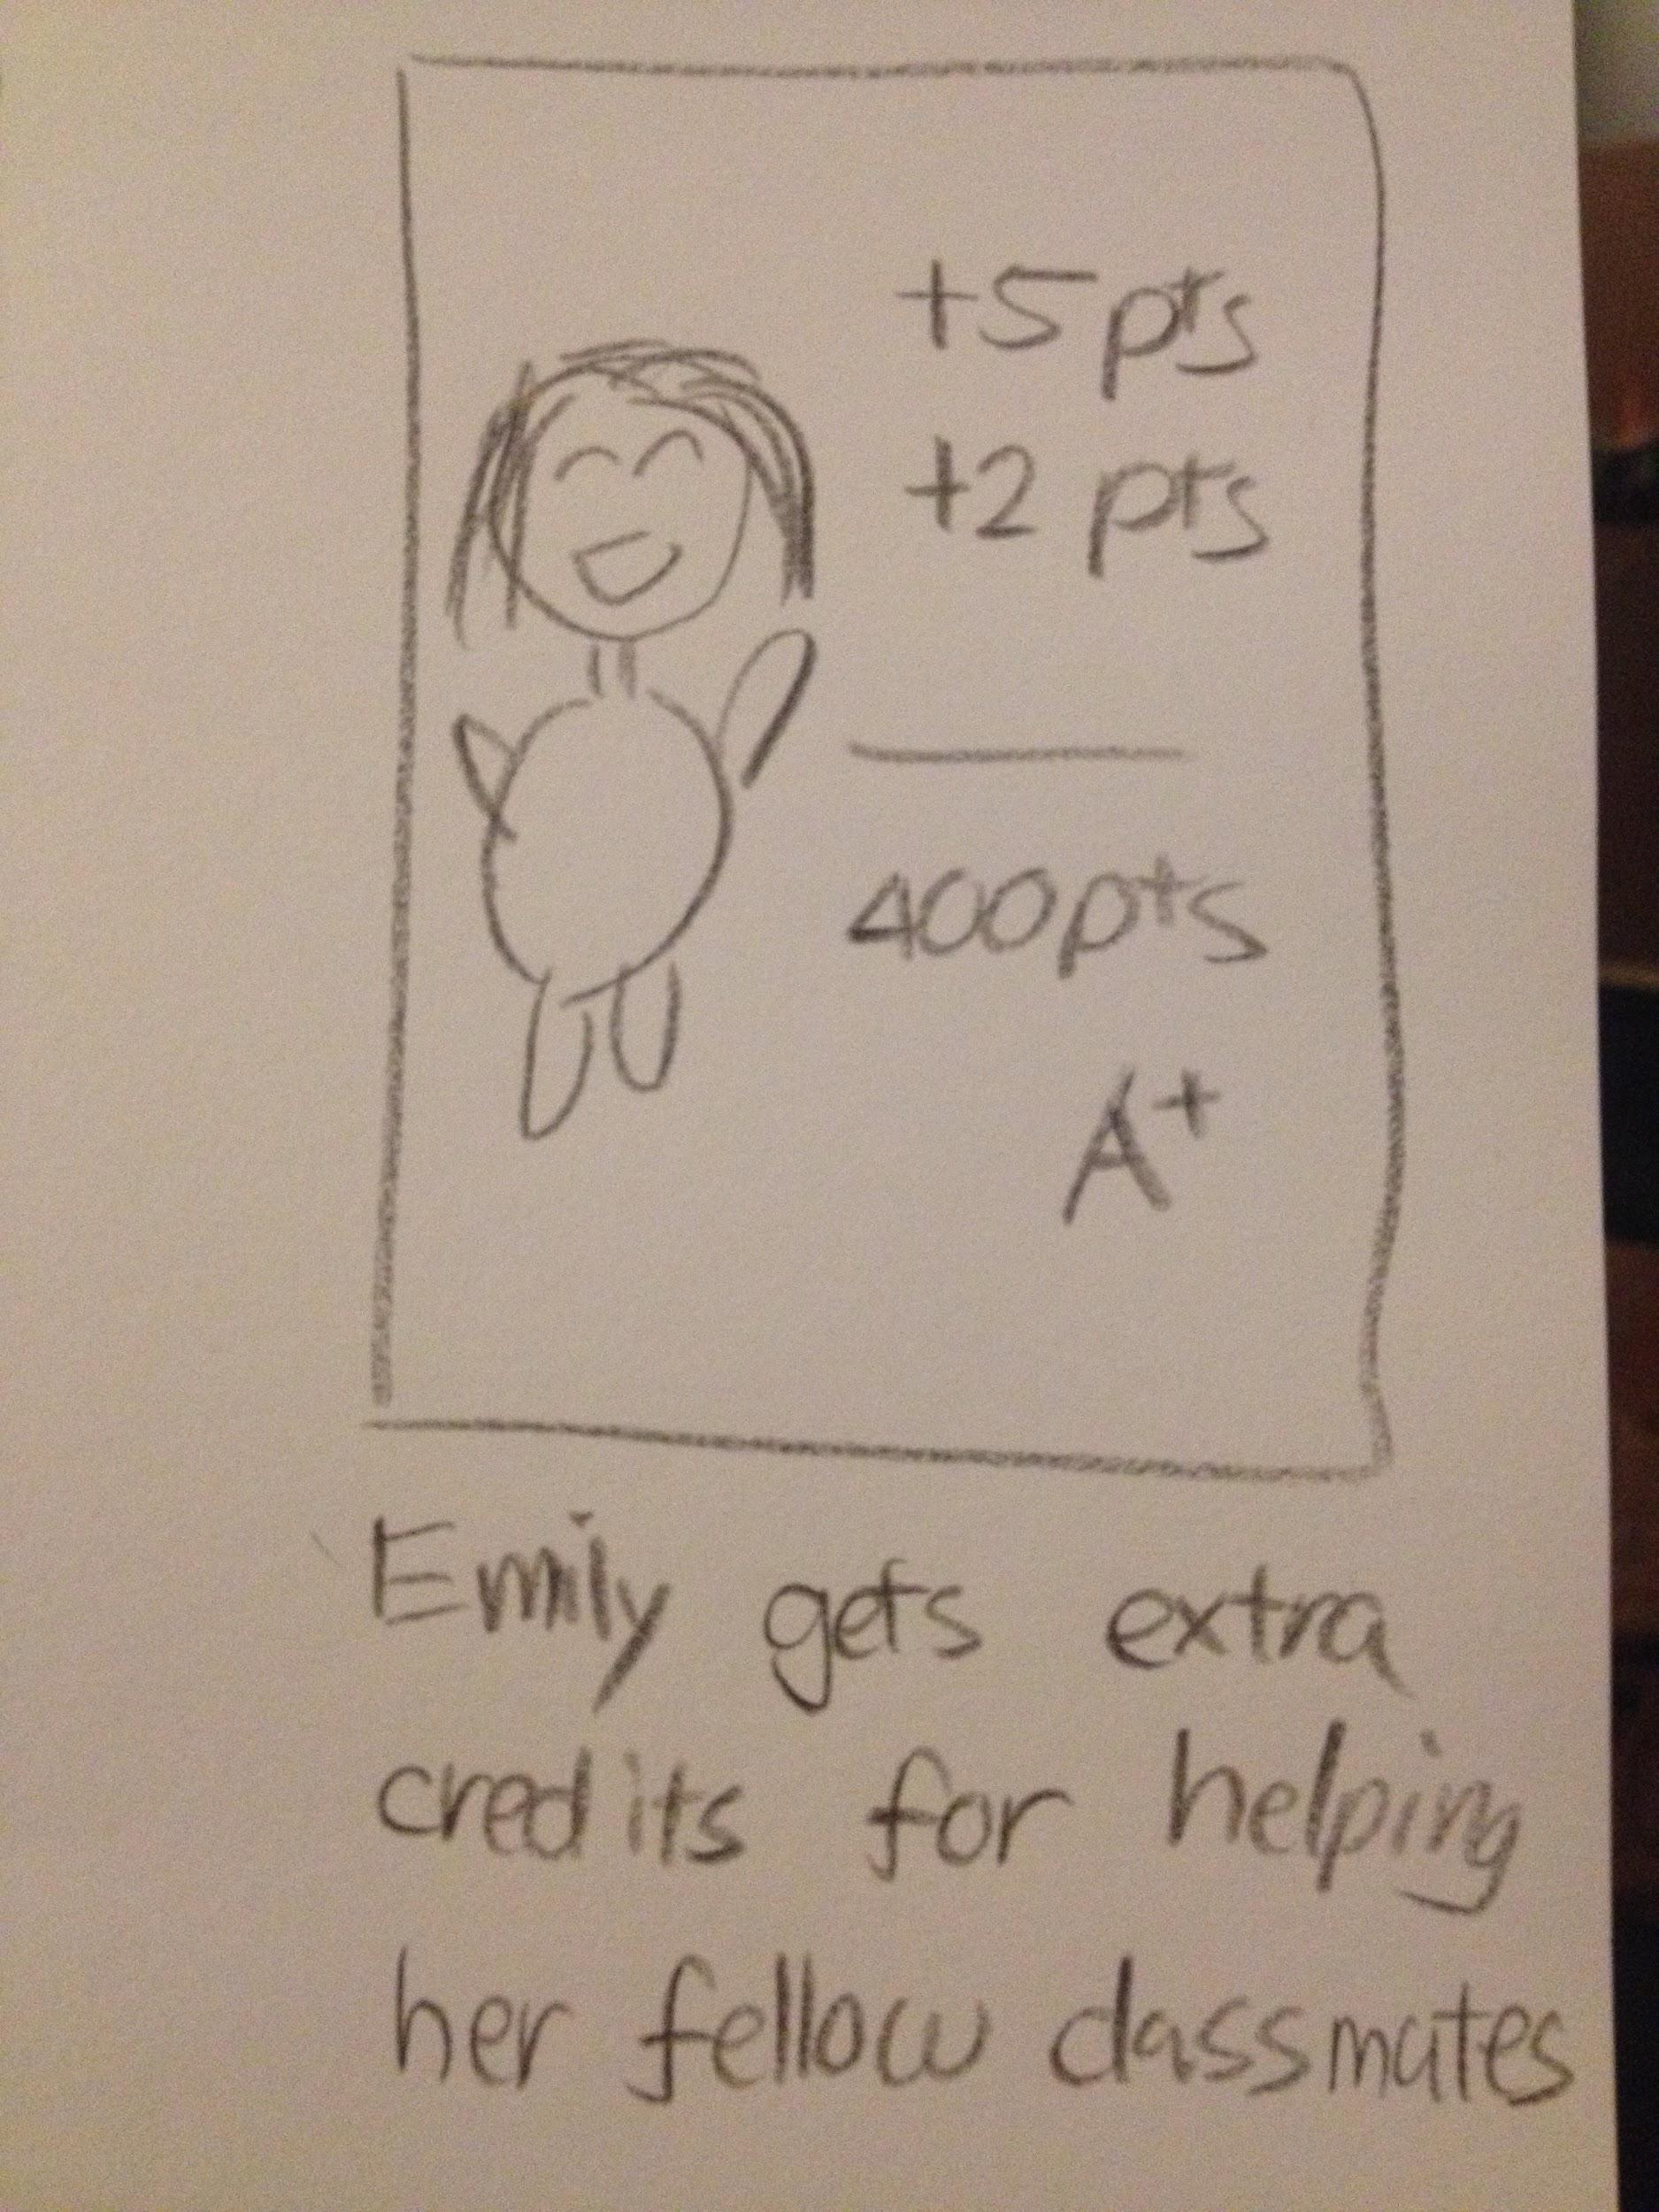 +5 pts
+2 pts
400pts
A+
Emily gets extra
credits for helping
her fellow classmates